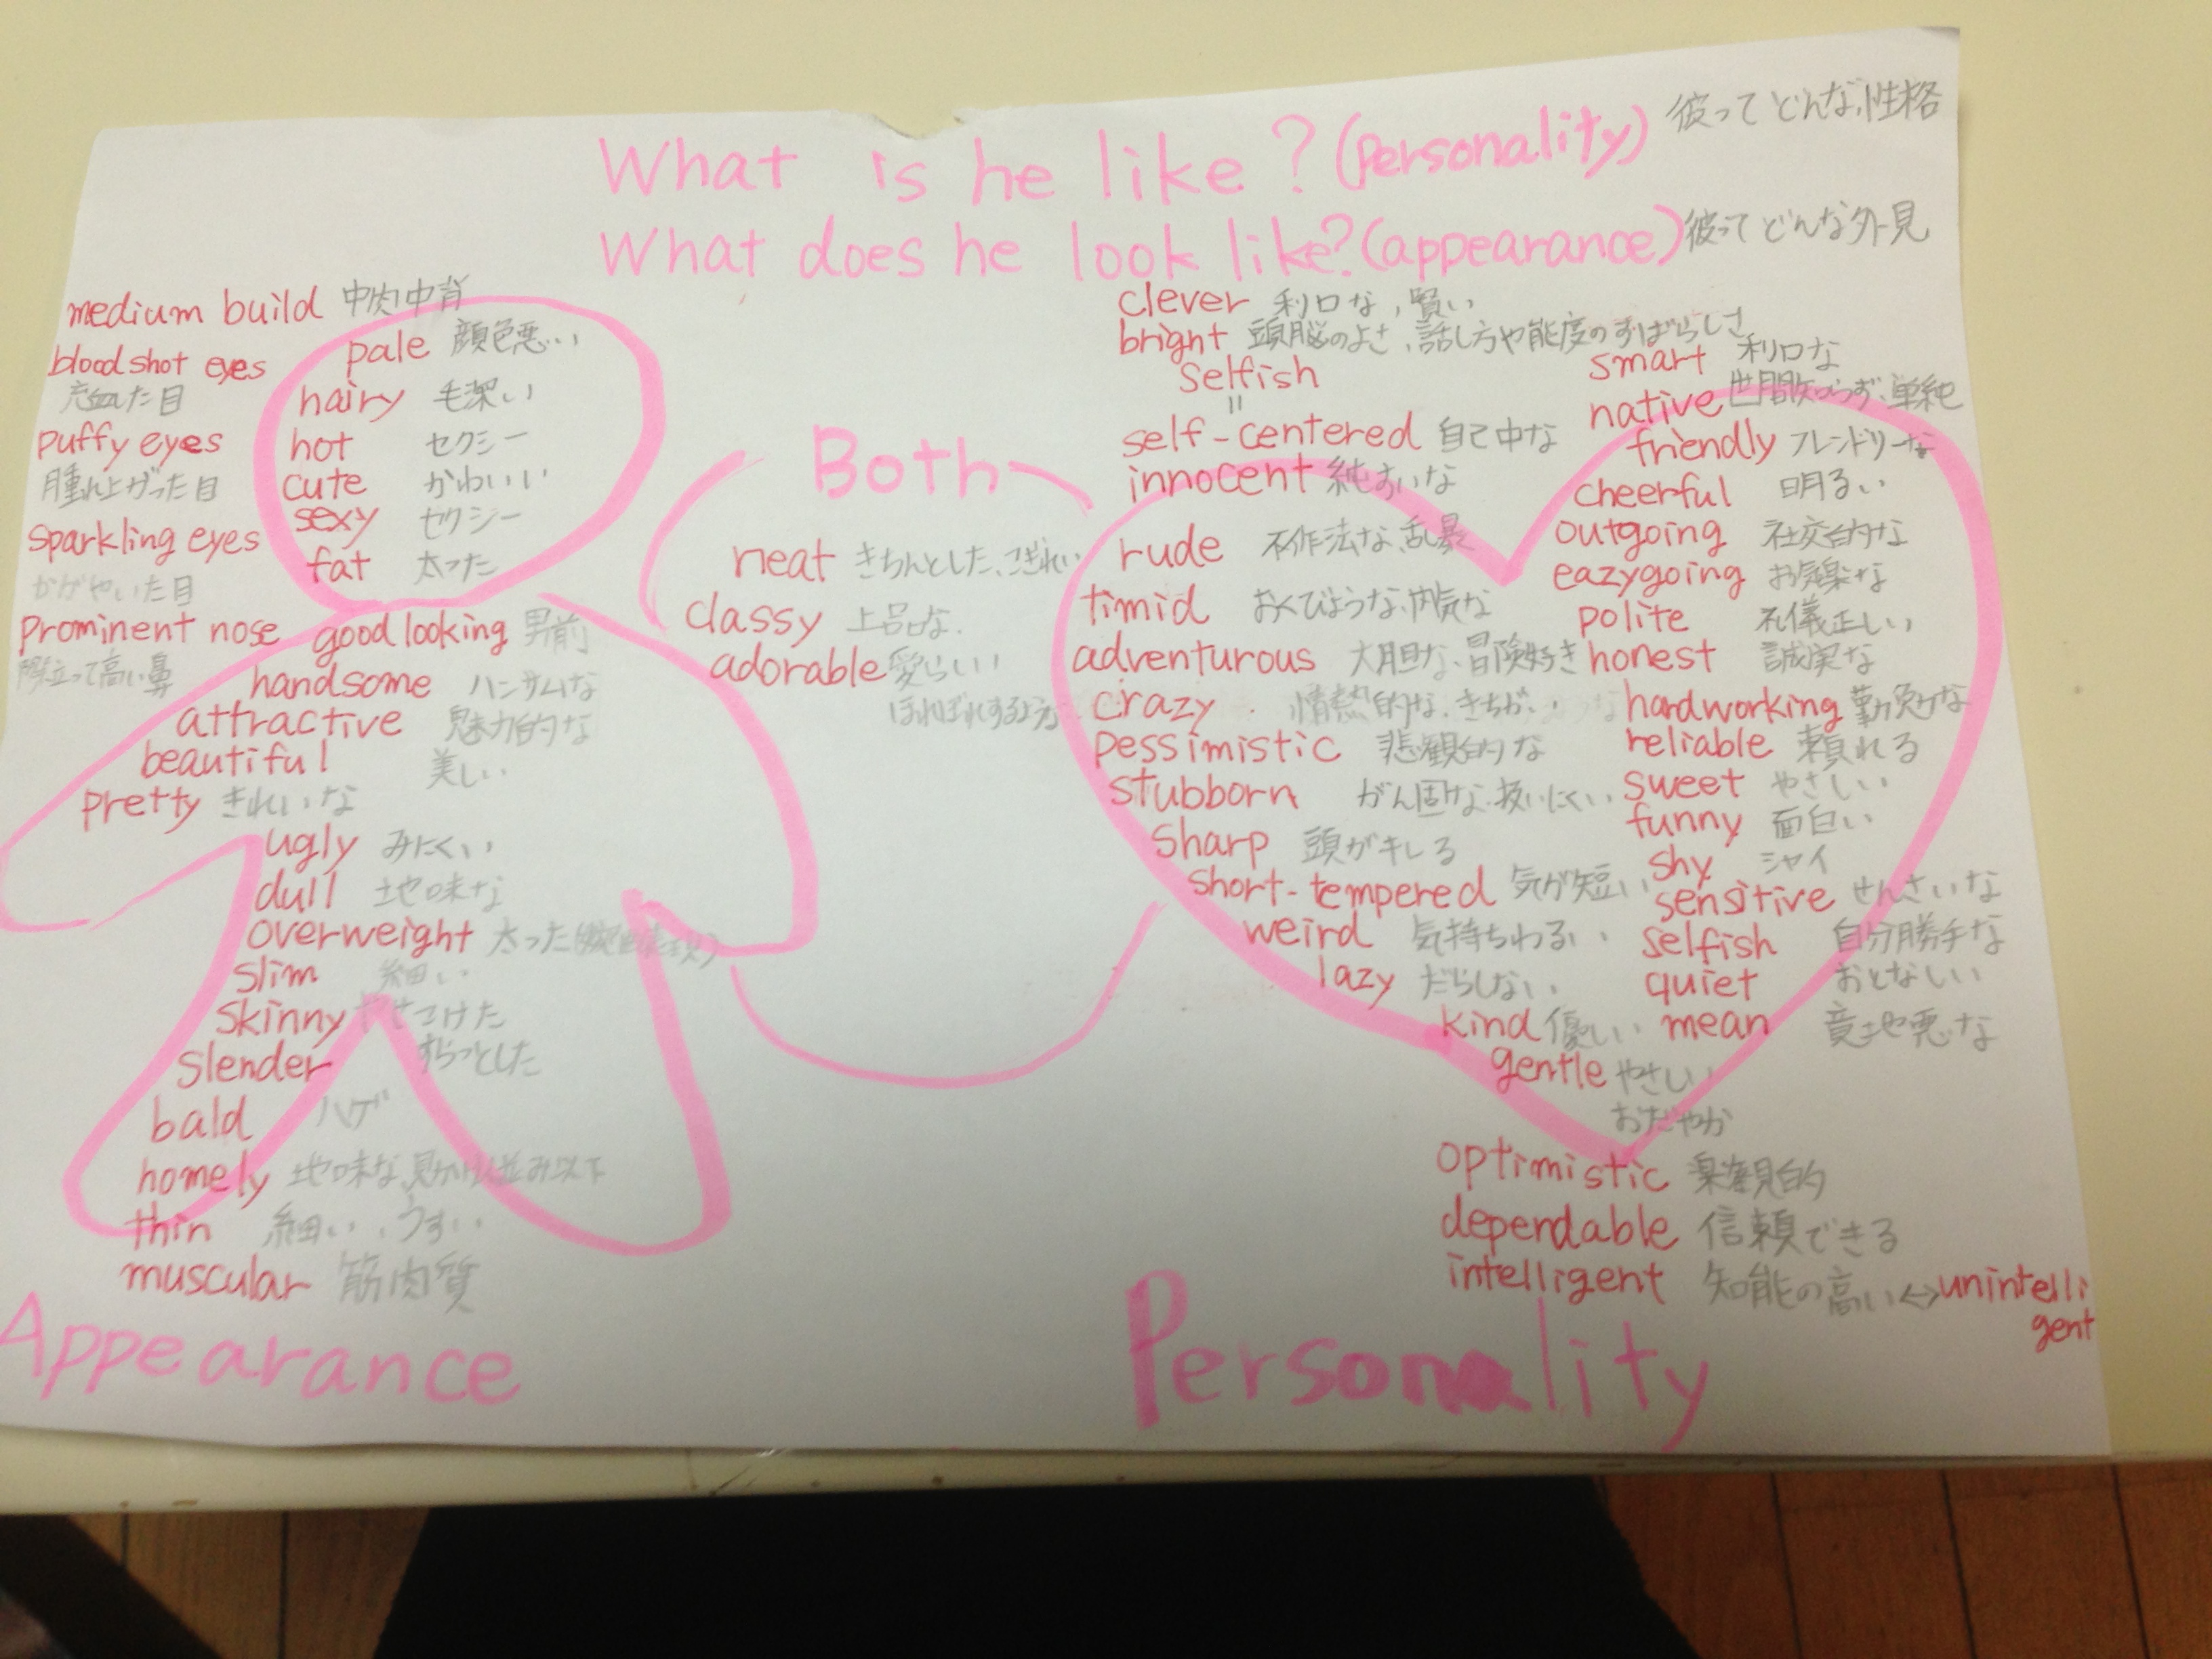 What is he like? (Personality) 彼ってどんな性格
What does he look like? (appearance) 彼ってどんな外見
medium build 中肉中背
bloodshot eyes
充血した目
puffy eyes
腫れ上がった目
sparkling eyes
かがやいた目
prominent nose
際立って高い鼻
pale 顔色悪い
hairy 毛深い
hot セクシー
cute かわいい
sexy セクシー
fat 太った
good looking 男前
handsome ハンサムな
attractive 魅力的な
beautiful 美しい
pretty きれいな
ugly みにくい
dull 地味な
overweight 太った
slim 細い
skinny やせこけた
slender すらっとした
bald ハゲ
homely 地味な、見かけが並み以下
thin 細い、うすい
muscular 筋肉質
Appearance
Both
neat きちんとした、こぎれい
classy 上品な
adorable 愛らしい
ほれぼれするような
clever 利口な、賢い
bright 頭脳のよさ、話し方や態度のすばらしさ
selfish
=
self-centered 自己中な
innocent 純すいな
rude 不作法な、乱暴
timid おくびような、内気な
adventurous 大胆な、冒険好き
crazy 情熱的な、きちがい
pessimistic 悲観的な
stubborn がん固な、扱いにくい
sharp 頭がキレる
short-tempered 気が短い
weird 気持ちわるい
lazy だらしない
kind 優しい
gentle やさしい
おだやか
smart 利口な
native 世間知らず、単純
friendly フレンドリーな
cheerful 明るい
outgoing 社交的な
eazygoing お気楽な
polite 礼儀正しい
honest 誠実な
hardworking 勤勉な
reliable 頼れる
sweet やさしい
funny 面白い
shy シャイ
sensitive せんさいな
selfish 自分勝手な
quiet おとなしい
mean 意地悪な
optimistic 楽観的
dependable 信頼できる
intelligent 知能の高い ↔ unintelli
gent
Personality